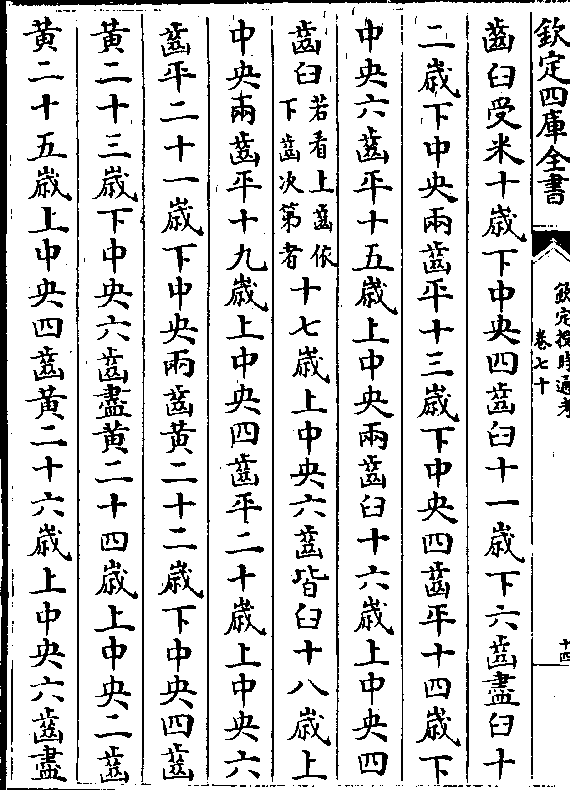 欽定四庫全書
欽定授時通考
卷七十
十四
齒臼受米十歲下中央四齒臼十一歲下六齒盡臼十
二歲下中央兩齒平十三歲下中央四齒平十四歲下
中央六齒平十五歲上中央兩齒臼十六歲上中央四
齒臼
若看上齒依
下齒次第者
十七歲上中央六齒皆臼十八歲上
中央兩齒平十九歲上中央四齒平二十歲上中央六
齒平二十一歲下中央兩齒黃二十二歲下中央四齒
黃二十三歲下中央六齒盡黃二十四歲上中央二齒
黃二十五歲上中央四齒黃二十六歲上中央六齒盡